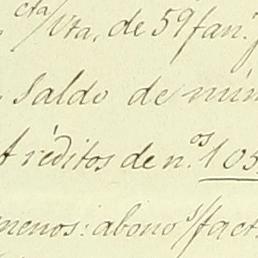 cta/vta, de 59 fan.
Saldo de núm
réditos de n.os 105
menos: abono s/fact